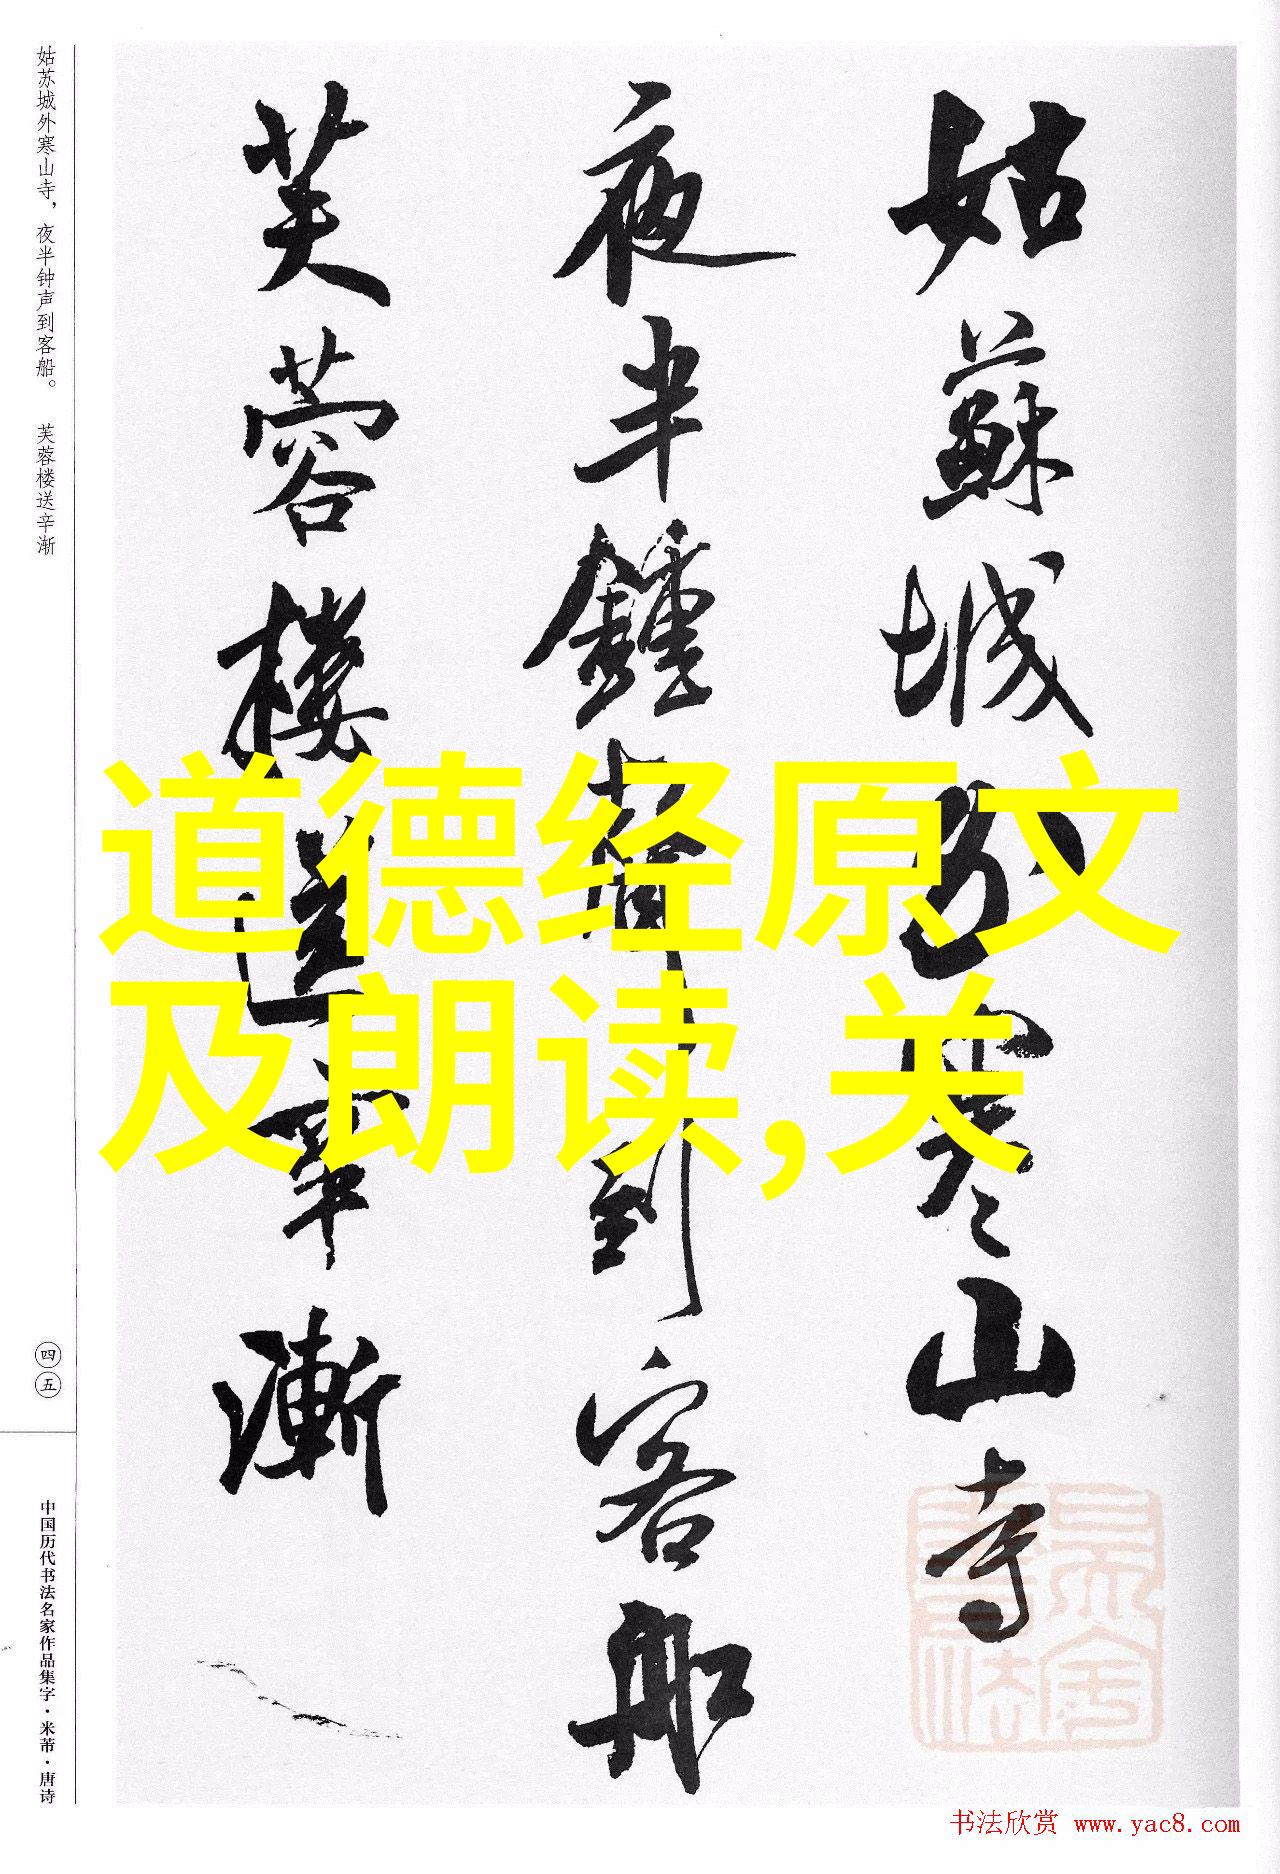 姑蘇城外寒山寺
夜半鍾聲到客船
芙蓉樓送辛漸
道德经原文
及朗读,关
姑苏城外寒山寺，夜半钟声到客船。 芙蓉楼送辛渐
四五
中国历代书法名家作品集字·米芾·唐诗
书法欣赏 www.yac8.com